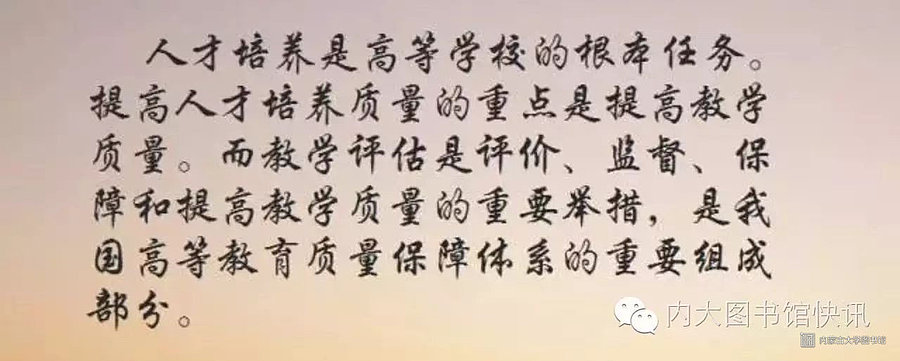 人才培养是高等学校的根本任务。
提高人才培养质量的重点是提高教学
质量。而教学评估是评价、监督、保
障和提高教学质量的重要举措，是我
国高等教育质量保障体系的重要组成
部分。
内大图书馆快讯
内蒙古大学图书馆